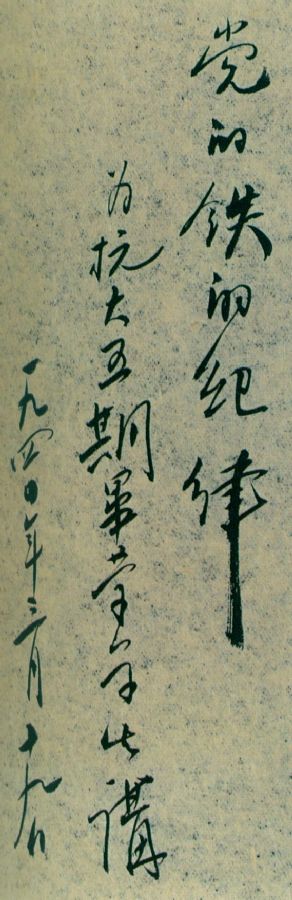 党的铁的纪律
为抗大五期畢业学生講
一九四〇年三月十九日